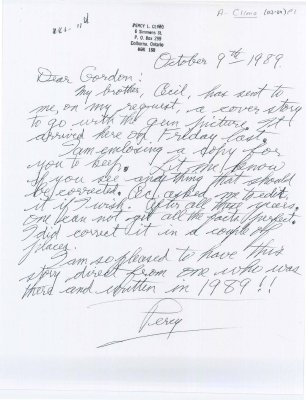 A- Climo
PERCY L. CLIMO
6 Simmons St.
P. O. Box 299
Colborne, Ontario
K0K 1S0
October 9th 1989.
Dear Gordon:
My brother, Cecil, has sent to
me, on my request, a cover story
to go with the gun picture. It
arrived here on Friday last.
I am enclosing a copy for
you to keep. Let me know
if you see anything that should
be corrected. Cec asked me to edit
it if I wish. After all these years
one can not get all the facts perfect.
I did correct it in a couple of
places.
I am so pleased to have this
story direct from one who was
there and written in 1989!!
Percy